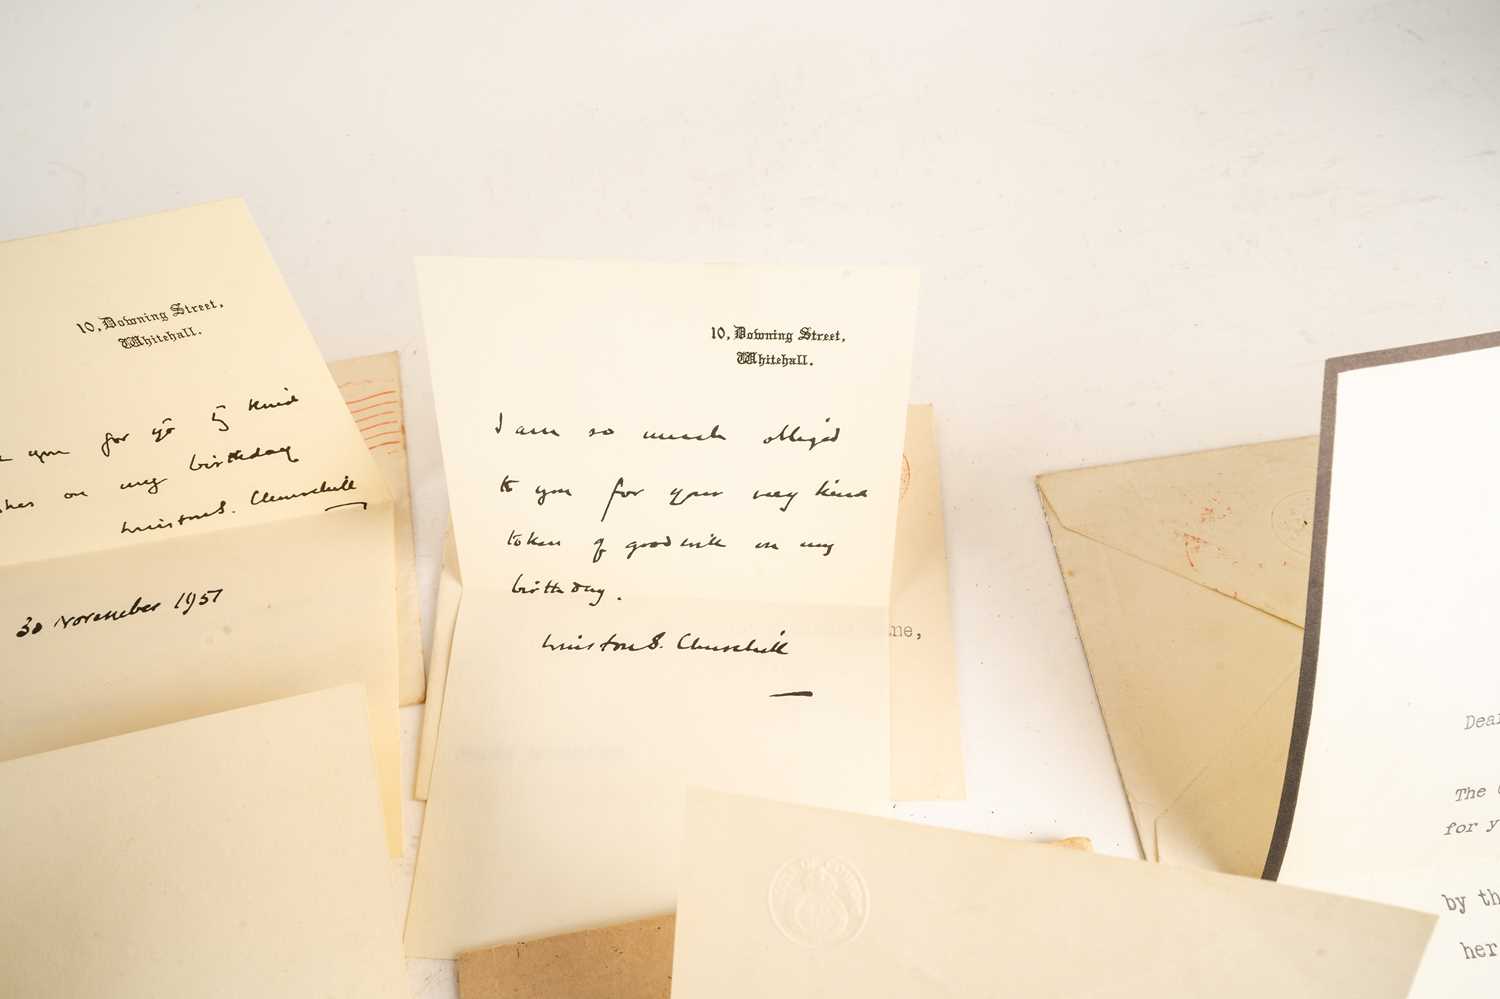 10, Downing Street,
Whitehall.
you for yr v kind
on my birthday
Winston S. Churchill
30 November 1951
10, Downing Street,
Whitehall.
I am so much obliged
to you for your very kind
token of goodwill on my
birthday.
Winston S. Churchill
ne,
Dear
The
for y
by th
her